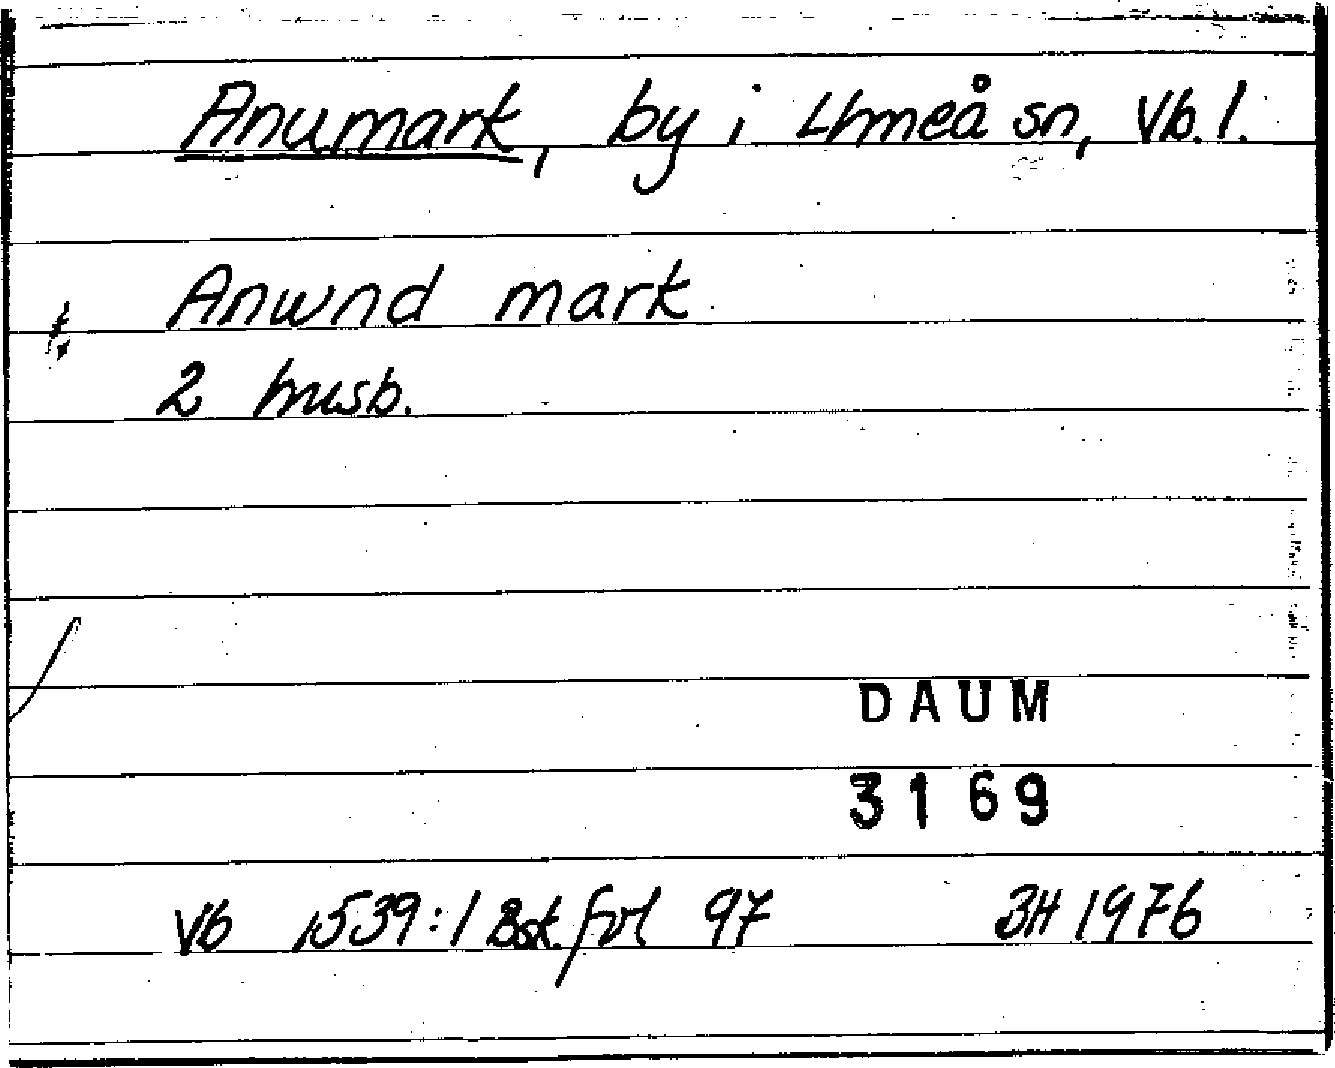 Anumark, by i Umeå sn, Vb. l.
Anwnd mark
2 husb.
DAUM
3169
Vb 1539:1 Bsk. fol 97 BH 1976